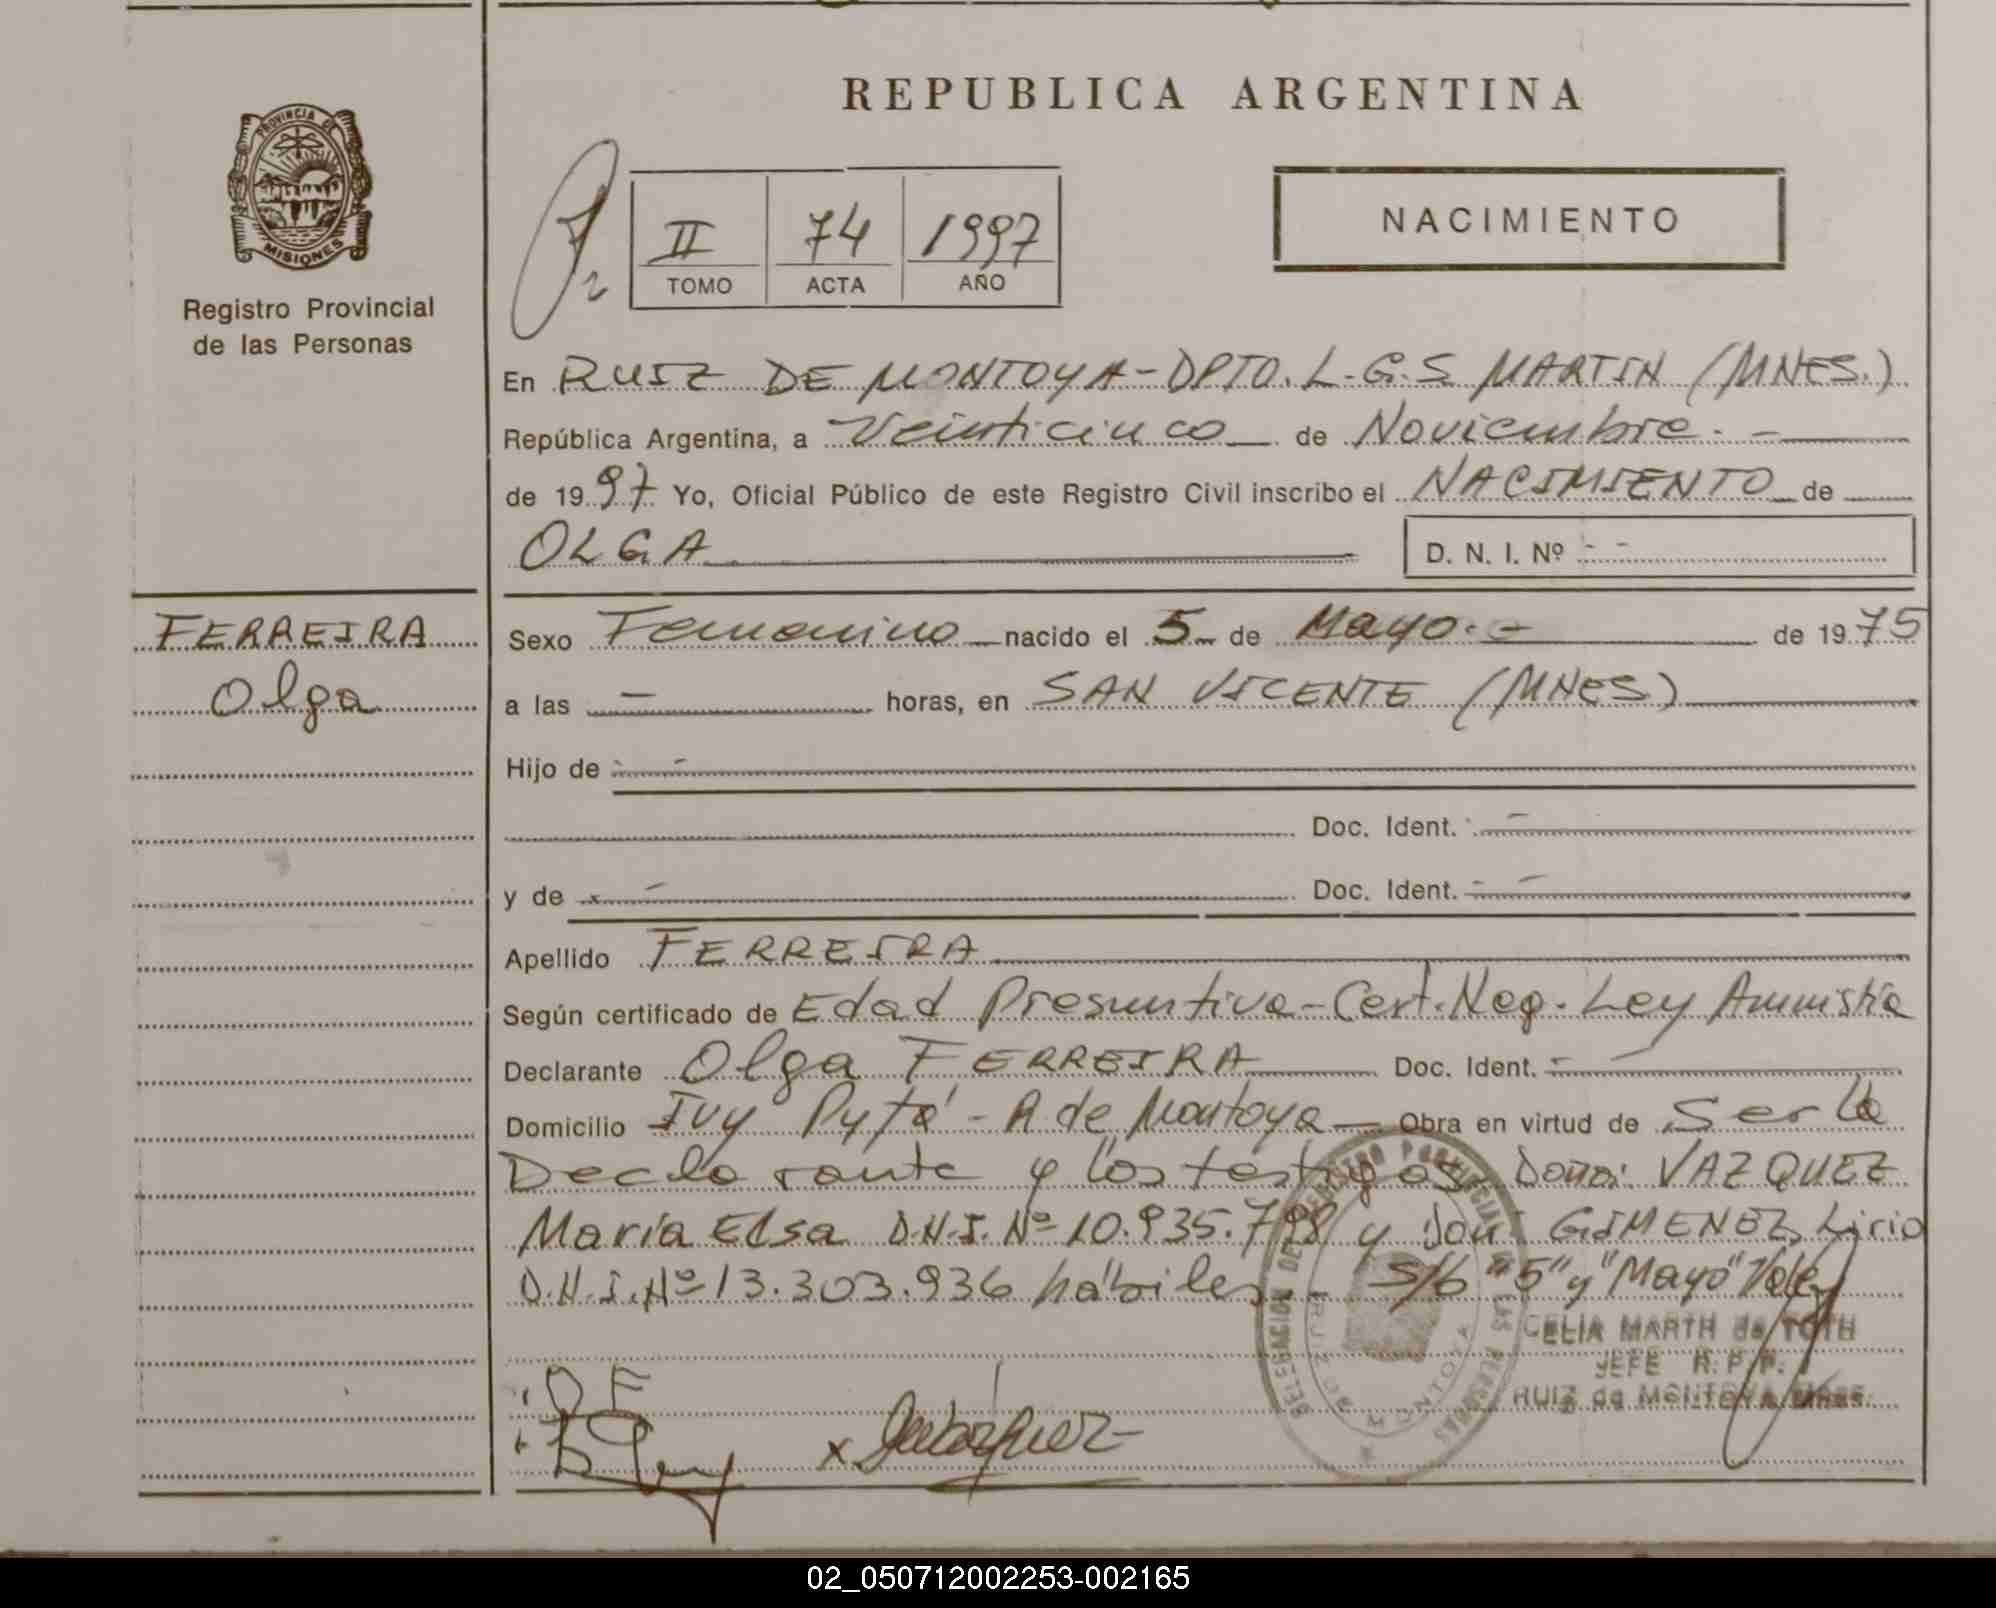 PROVINCIA DE
MISIONES
Registro Provincial
de las Personas
REPUBLICA ARGENTINA
II 74 1997
TOMO ACTA AÑO
NACIMIENTO
En RUIZ DE MONTOYA - DPTO. L.G.S. MARTIN (MNES.)
República Argentina, a Veinticinco de Noviembre. -
de 1997 Yo, Oficial Público de este Registro Civil inscribo el NACIMIENTO de
OLGA D. N. I. Nº - -
FERREIRA
Olga
Sexo Femenino nacido el 5 de Mayo. - de 1975
a las - horas, en SAN VICENTE (MNES)
Hijo de - -
Doc. Ident. -
y de - Doc. Ident. - -
Apellido FERREIRA
Según certificado de Edad Presuntiva - Cert. Neg. Ley Amnistía
Declarante Olga FERREIRA Doc. Ident. -
Domicilio Ivy Pytá - R. de Montoya Obra en virtud de Ser la
Declarante y los testigos Doña: VAZQUEZ
María Elsa D.N.I. Nº 10.935.798 y don GIMENEZ, Lirio
D.N.I. Nº 13.303.936 hábiles. - S/b "5" y "Mayo" Vale.
DELEGACION DEL REGISTRO PROVINCIAL DE LAS PERSONAS
RUIZ DE MONTOYA
CELIA MARTH de TOTH
JEFE R. P. P.
RUIZ de MONTOYA Mnes.
O F
x
02_050712002253-002165